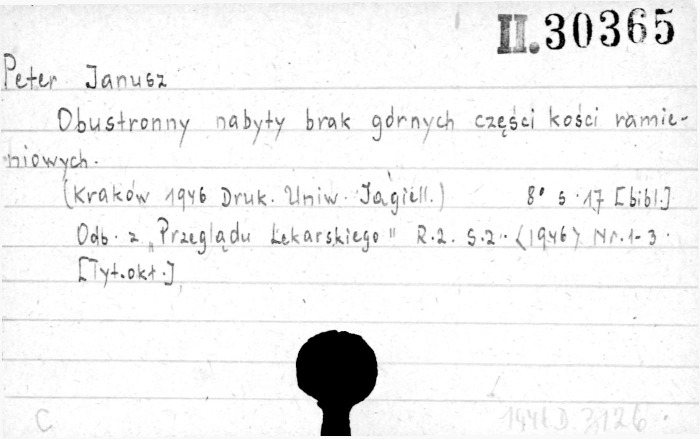 II.30365
Peter Janusz
Obustronny nabyty brak górnych części kości ramie-
niowych.
(Kraków 1946 Druk. Uniw. Jagiell.) 8° s. 17 [bibl.]
Odb. z „Przeglądu Lekarskiego" R.2. S.2. (1946) Nr. 1-3.
[Tyt. okł.]
C 1946 D. 3126.